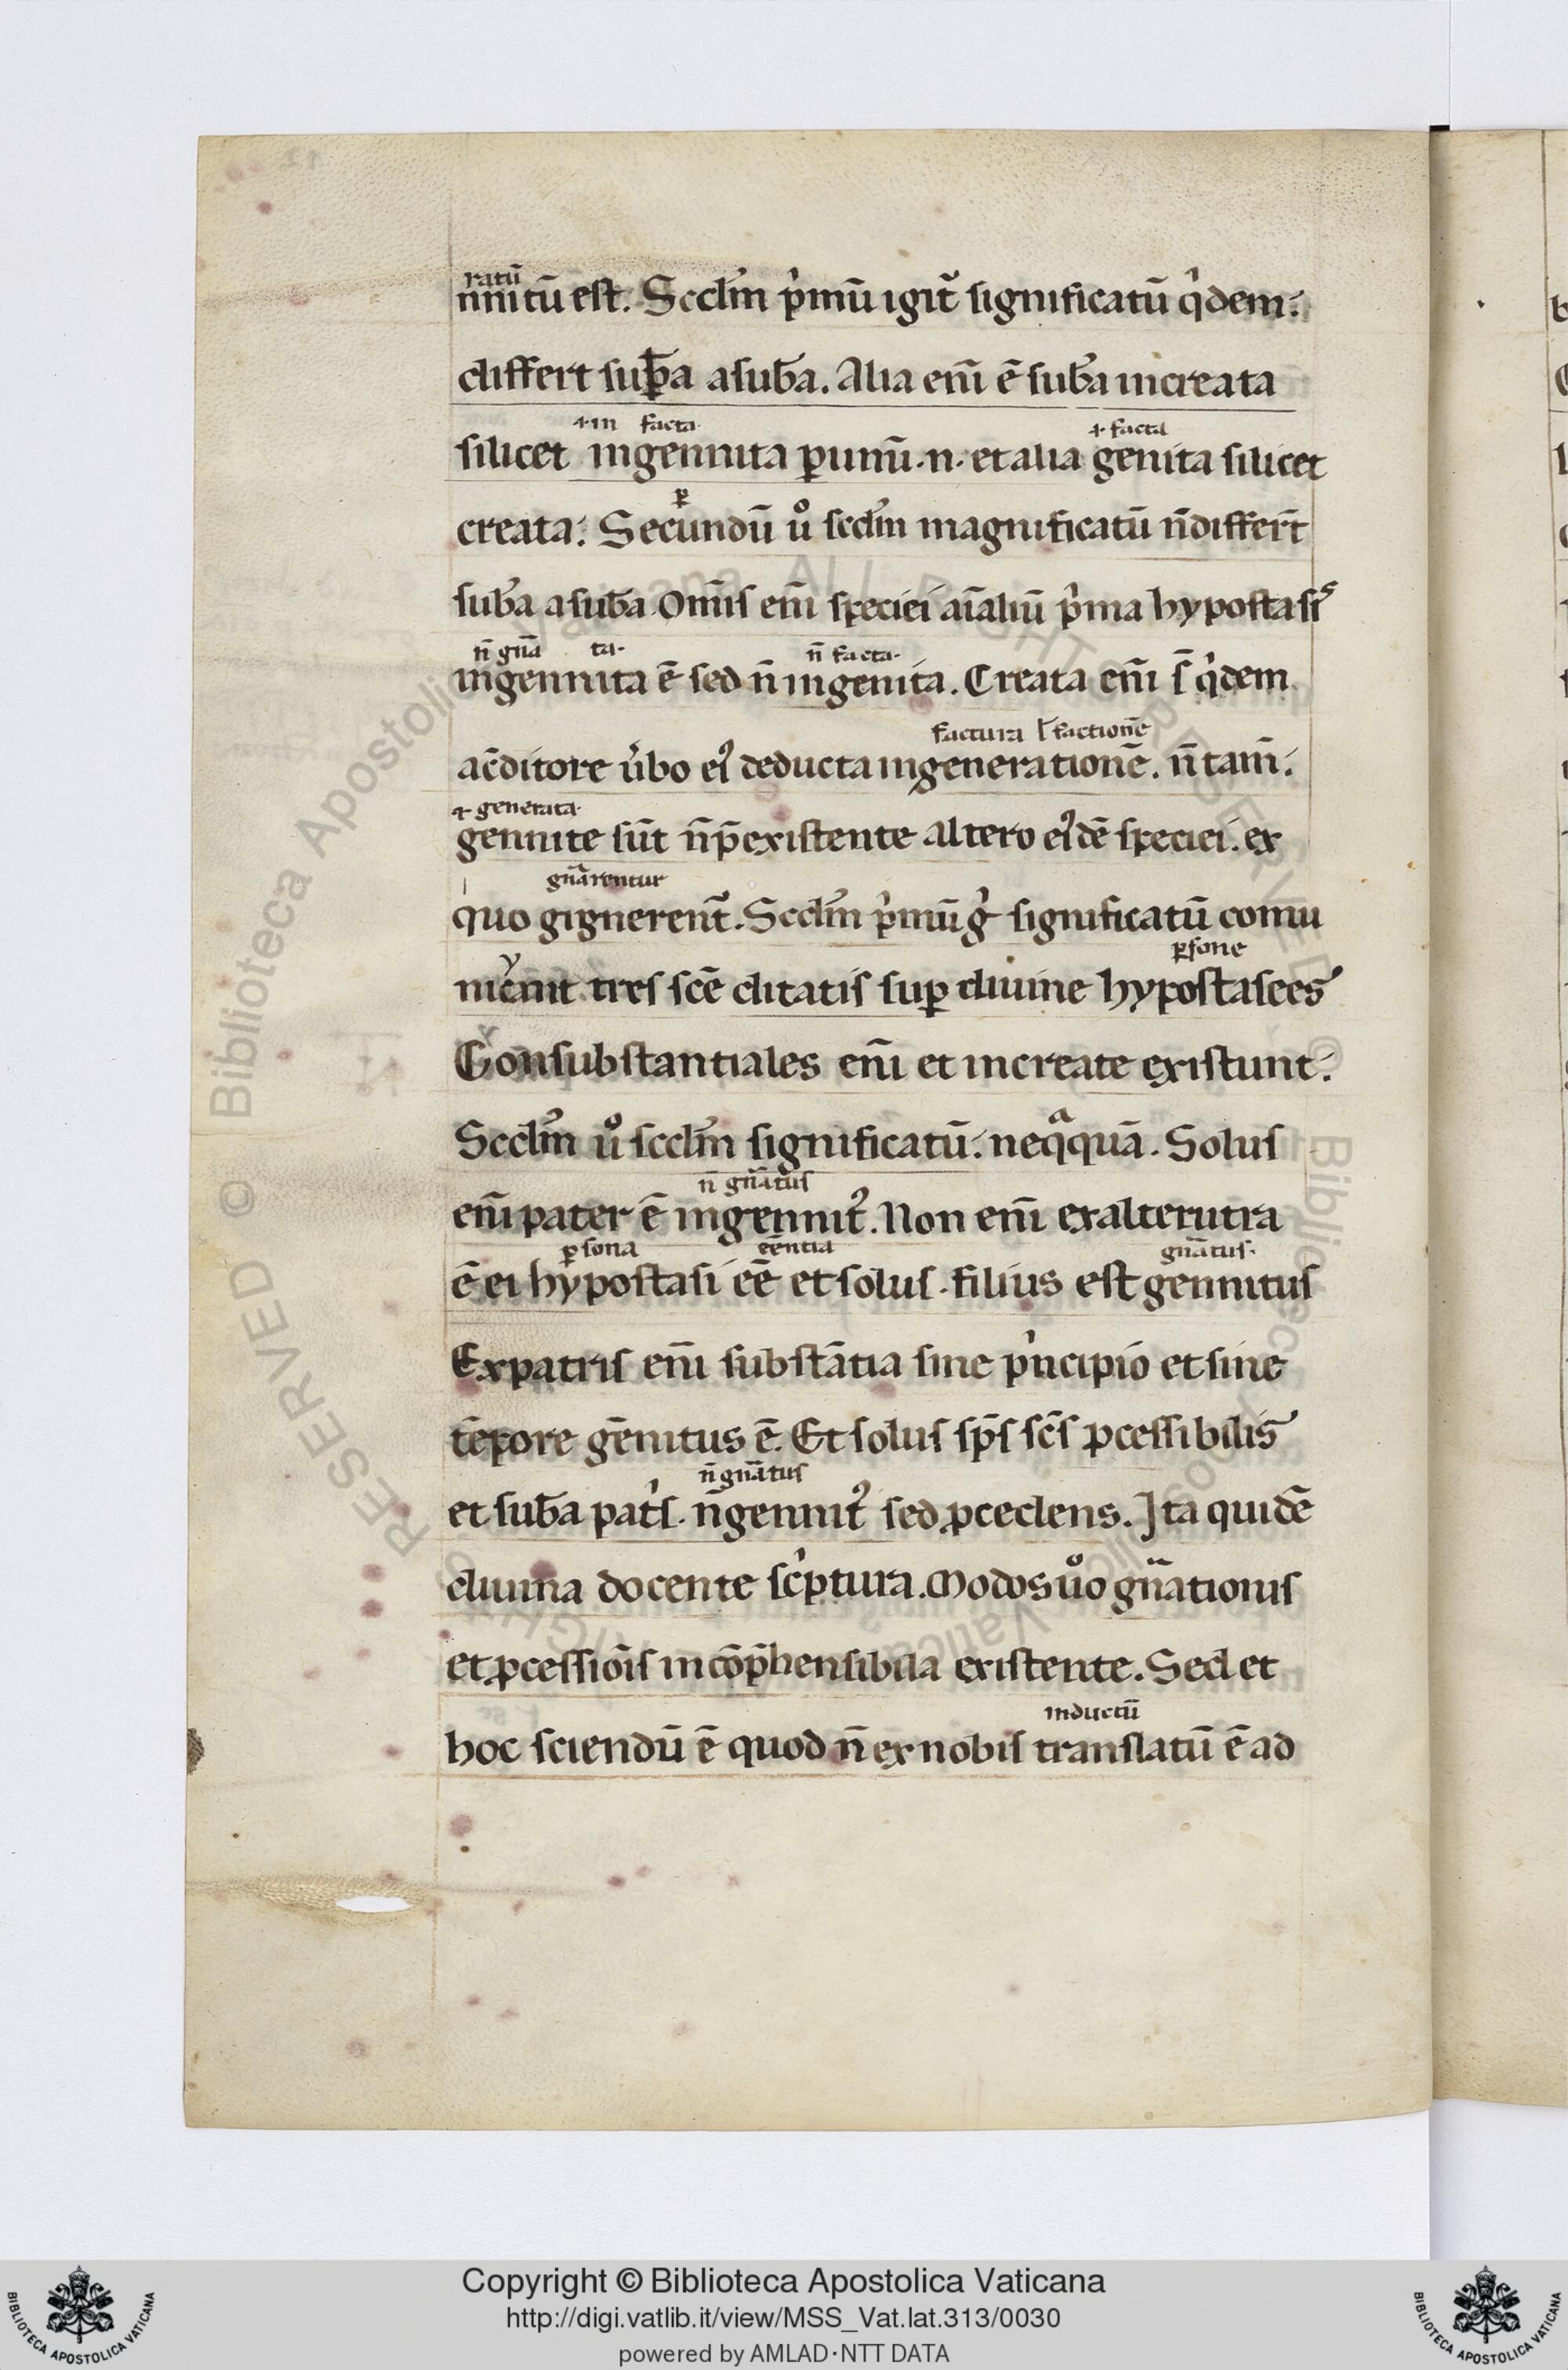 ratū
nnitū est. Scd̄m p̓mū igit̃ significatū q̓dem:
differt sub̄a a sub̄a. Alia eni̅ ē sub̄a increata
.i. in facta .i. facta
silicet ingennita p̱ unū .n. et alia genita silicet
creata: Secundū ů scd̄m magnificatū n̄ differt̄
sub̄a a sub̄a Om̄is eni̅ speciei aīaliū p̓ma hypostasis
n̄ gn̄a ta. n̄ facta.
ingennita ē sed n̄ ingenita. Creata eni̅ s̄ q̓dem
factura l̄ factionē
a c̄ditore u̓bo eiꝰ deducta in generationē. n̄ tam̄:
.i. generata.
gennite sūt n̄ p̄existente altero eiꝰdē speciei: ex
gn̄arentur
quo gignerent̃. Scd̄m p̓mū g̓ significatū comu
ꝑsone
nicānt tres scē ditatis suꝑ diuine hypostasees
Consubstantiales eni̅ et increate existunt:
Scd̄m ů scd̄m significatū: neqͣquā. Solus
n̄ gn̄atus
eni̅ pater ē ingennitꝰ. Non eni̅ ex alterutra
ꝑsona eēntia gn̄atus.
ē ei hypostasi eē et solus. filius est gennitus
Ex patris eni̅ substātia sine p̓ncipio et sine
tēpore gēnitus ē. Et solus sp̄s sc̄s ꝓcessibilis
n̄ gn̄atus
et sub̄a pat̓s. n̄ gennitꝰ sed ꝓcedens. Ita quidē
diuina docente sc̓ptura. Modos ůo gn̄ationis
et ꝓcessiōis incōp̄hensibila existente. Sed et
inductū
hoc sciendū ē quod n̄ ex nobis translatū ē ad
© Biblioteca Apostolica Vaticana ALL RIGHTS RESERVED
Copyright © Biblioteca Apostolica Vaticana
http://digi.vatlib.it/view/MSS_Vat.lat.313/0030
powered by AMLAD·NTT DATA
BIBLIOTECA APOSTOLICA VATICANA
BIBLIOTECA APOSTOLICA VATICANA